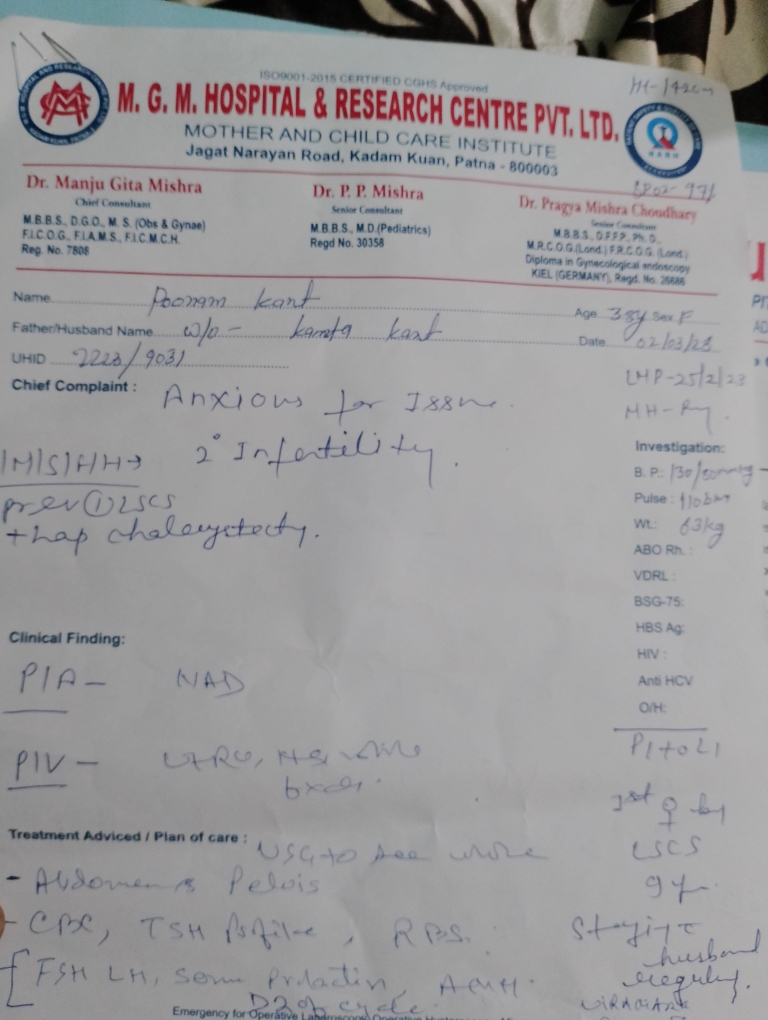 ISO9001-2015 CERTIFIED CGHS Approved
Ht-142cm
M. G. M. HOSPITAL & RESEARCH CENTRE PVT. LTD.
MOTHER AND CHILD CARE INSTITUTE
Jagat Narayan Road, Kadam Kuan, Patna - 800003
Dr. Manju Gita Mishra
Chief Consultant
M.B.B.S., D.G.O., M. S. (Obs & Gynae)
F.I.C.O.G., F.I.A.M.S., F.I.C.M.C.H.
Reg. No. 7808
Dr. P. P. Mishra
Senior Consultant
M.B.B.S., M.D.(Pediatrics)
Regd No. 30358
Dr. Pragya Mishra Choudhary
Senior Consultant
M.B.B.S., D.F.F.P., Ph. D.,
M.R.C.O.G.(Lond.) F.R.C.O.G. (Lond.)
Diploma in Gynaecological endoscopy
KIEL (GERMANY), Regd. No. 26686
Name Poonam Kant Age 38y Sex F
Father/Husband Name w/o - Kamta Kant Date 02/03/23
UHID 2223/9031
LMP-25/2/23
Chief Complaint : Anxious for Issue.
MH-Ry.
2° Infertility.
prev ① LSCS
+ Lap cholecystecty.
Investigation:
B. P.: 130/80mmHg
Pulse : 110bpm
Wt.: 63kg
ABO Rh. :
VDRL :
BSG-75:
HBS Ag:
HIV :
Anti HCV
O/H:
P1+0L1
1st ♀ by
LSCS
9 yr.
Staying c
husband
regularly.
Clinical Finding:
P/A - NAD
P/V -
Treatment Adviced / Plan of care :
USG to see whole
- Abdomen & Pelvis
- CBC, TSH Profile, RBS.
[ FSH LH, Serum Prolactin, AMH.
D2 of cycle.
Emergency for Operative